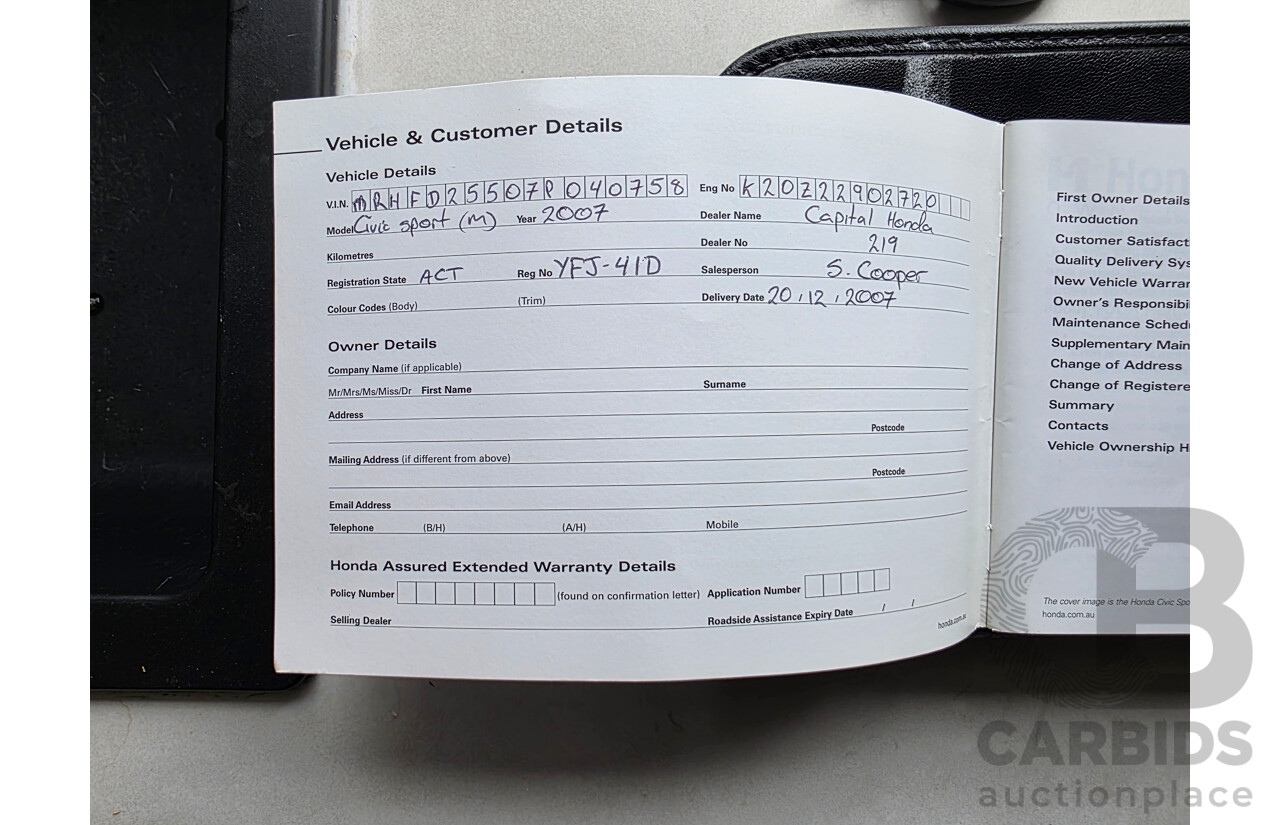 Vehicle & Customer Details
Vehicle Details
V.I.N. MRHFD25507P040758 Eng No K20Z22902720
Model Civic sport (M) Year 2007 Dealer Name Capital Honda
Kilometres Dealer No 219
Registration State ACT Reg No YFJ-41D Salesperson S. Cooper
Colour Codes (Body) (Trim) Delivery Date 20 / 12 / 2007
Owner Details
Company Name (if applicable)
Mr/Mrs/Ms/Miss/Dr First Name Surname
Address
Postcode
Mailing Address (if different from above)
Postcode
Email Address
Telephone (B/H) (A/H) Mobile
Honda Assured Extended Warranty Details
Policy Number (found on confirmation letter) Application Number
Selling Dealer Roadside Assistance Expiry Date / /
honda.com.au
First Owner Details
Introduction
Customer Satisfact
Quality Delivery Sys
New Vehicle Warran
Owner's Responsibi
Maintenance Sched
Supplementary Main
Change of Address
Change of Registere
Summary
Contacts
Vehicle Ownership H
The cover image is the Honda Civic Spo
honda.com.au
CB
CARBIDS
auctionplace